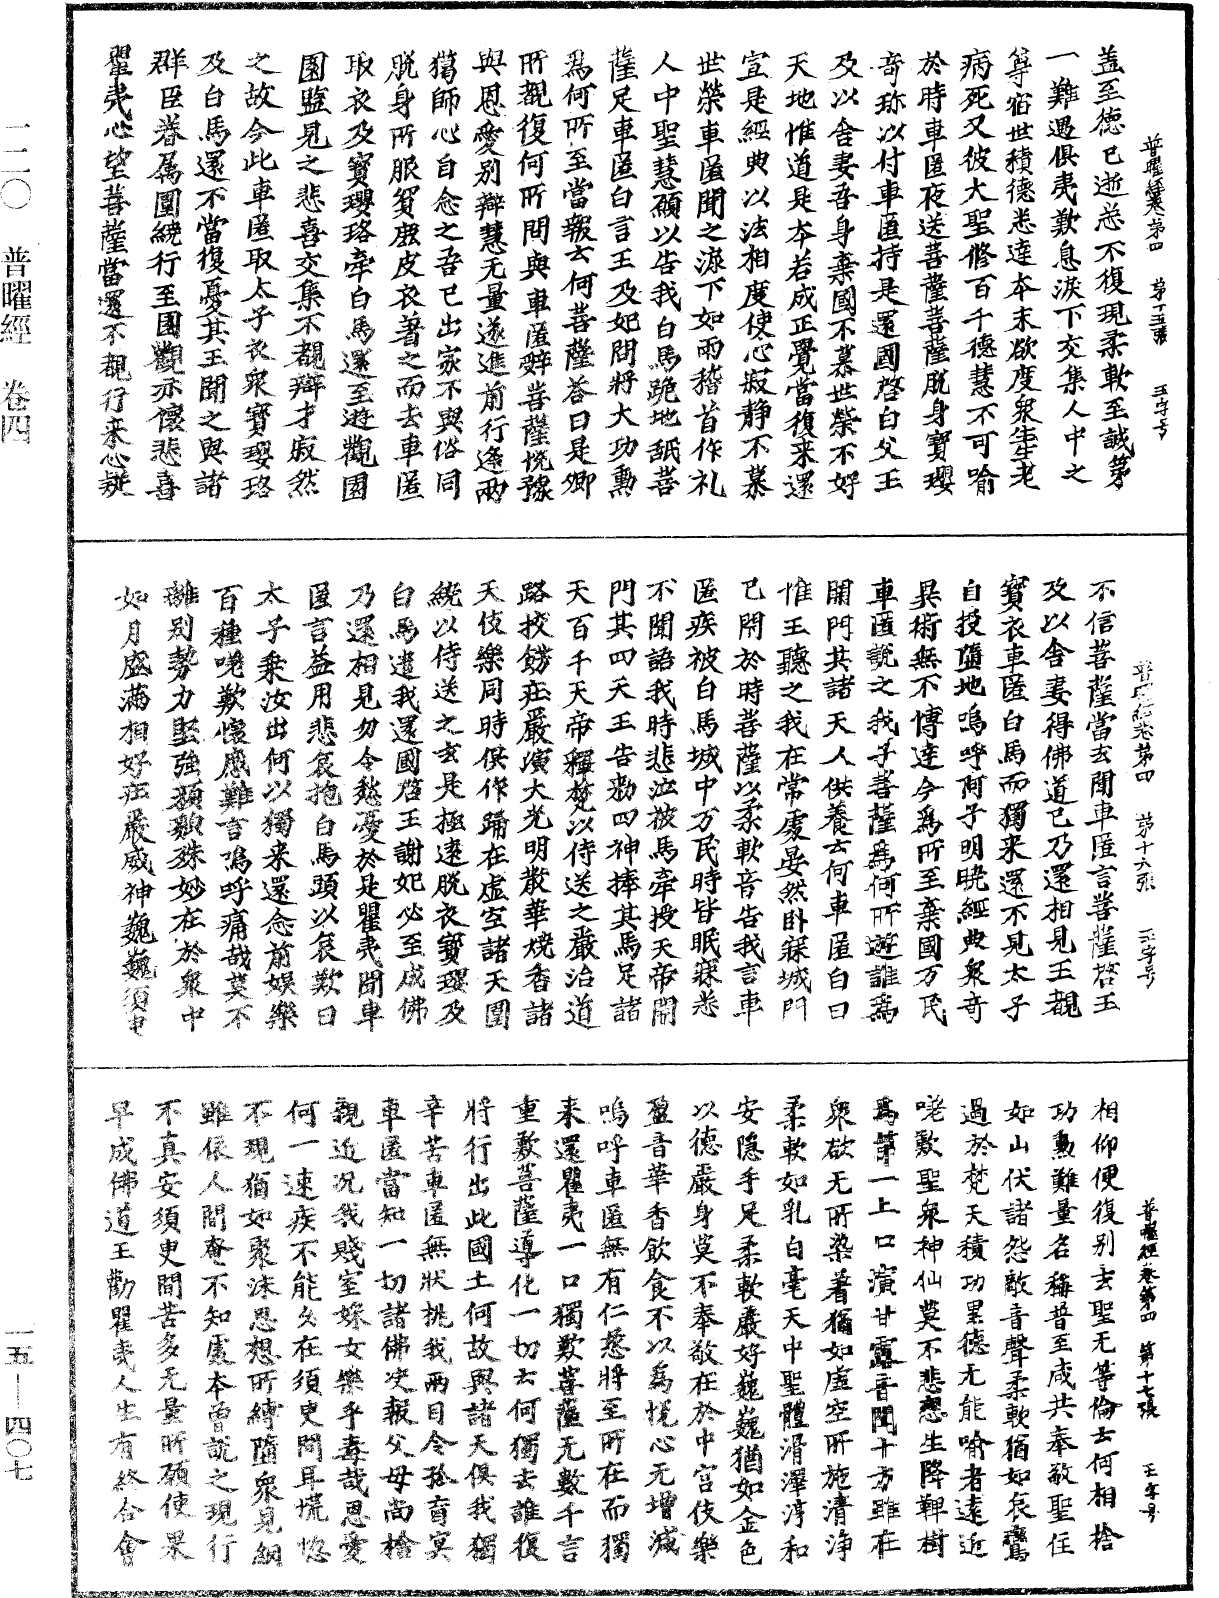 普曜經卷第四　第十五張　王字号
蓋至德已逝悉不復現柔軟至誠第
一難遇俱夷歎息淚下交集人中之
尊宿世積德悉達本末欲度衆生老
病死又彼大聖修百千德慧不可喻
於時車匿夜送菩薩菩薩脫身寶瓔
奇珎以付車匿持是還國啓白父王
及以舍妻吾身棄國不慕世榮不好
天地惟道是本若成正覺當復来還
宣是經典以法相度使心寂静不慕
世榮車匿聞之淚下如雨稽首作礼
人中聖慧願以告我白馬跪地舐菩
薩足車匿白言王及妃問將大功勳
為何所至當報云何菩薩荅曰是卿
所覩復何所問與車匿辭菩薩恱豫
與恩愛別辯慧无量遂進前行逢兩
獦師心自念之吾已出家不與俗同
脫身所服貿鹿皮衣著之而去車匿
取衣及寶瓔珞牽白馬還至遊觀園
園監見之悲喜交集不覩辯才寂然
之故今此車匿取太子衣衆寶瓔珞
及白馬還不當復憂其王聞之與諸
群臣眷屬圍繞行至園觀亦懷悲喜
瞿夷心望菩薩當還不覩行来心疑
普曜經卷第四　第十六張　王字号
不信菩薩當去聞車匿言菩薩啓王
及以舍妻得佛道已乃還相見王覩
寶衣車匿白馬而獨来還不見太子
自投墮地嗚呼阿子明曉經典衆奇
異術無不博達今為所至棄國万民
車匿說之我子菩薩為何所遊誰為
開門其諸天人供養云何車匿白曰
惟王聽之我在常處晏然卧寐城門
已閇於時菩薩以柔軟音告我言車
匿疾被白馬城中万民時皆眠寐悉
不聞語我時悲泣被馬牽授天帝開
門其四天王告勑四神捧其馬足諸
天百千天帝釋梵以侍送之嚴治道
路挍餝莊嚴演大光明散華燒香諸
天伎樂同時俱作歸在虛空諸天圍
繞以侍送之去是極遠脫衣寶瓔及
白馬遣我還國啓王謝妃必至成佛
乃還相見勿令愁憂於是瞿夷聞車
匿言益用悲哀抱白馬頭以哀歎曰
太子乗汝出何以獨来還念前娛樂
百種咾歎懷感難言嗚呼痛哉莫不
離別勢力堅強顔貌殊妙在於衆中
如月盛滿相好莊嚴威神巍巍須臾
普曜經卷第四　第十七張　王字号
相仰便復別去聖无等倫云何相捨
功勳難量名稱普至咸共奉敬聖住
如山伏諸怨敵音聲柔軟猶如哀鸞
過於梵天積功累德无能喻者遠近
咾歎聖衆神仙莫不悲戀生降鞞樹
為第一上口演甘露音聞十方雖在
衆欲无所染著猶如虛空所施清淨
柔軟如乳白毫天中聖體滑澤淳和
安隱手足柔軟嚴好巍巍猶如金色
以德嚴身莫不奉敬在於中宮伎樂
盈音華香飲食不以為恱心无增減
嗚呼車匿無有仁慈將至所在而獨
来還瞿夷一口獨歎菩薩无數千言
重歎菩薩導化一切云何獨去誰復
將行出此國土何故與諸天俱我獨
辛苦車匿無狀挑我兩目令捨盲冥
車匿當知一切諸佛决報父母尚捨
親近况我賤室婇女樂乎毒哉恩愛
何一速疾不能久在須臾間耳慌惚
不現猶如聚沫思想所縛墮衆見網
雖依人間奄不知處本曾說之現行
不真安須臾間苦多无量所願使果
早成佛道王勸瞿夷人生有終合會
二二〇　普曜經　卷四
一五——四〇七